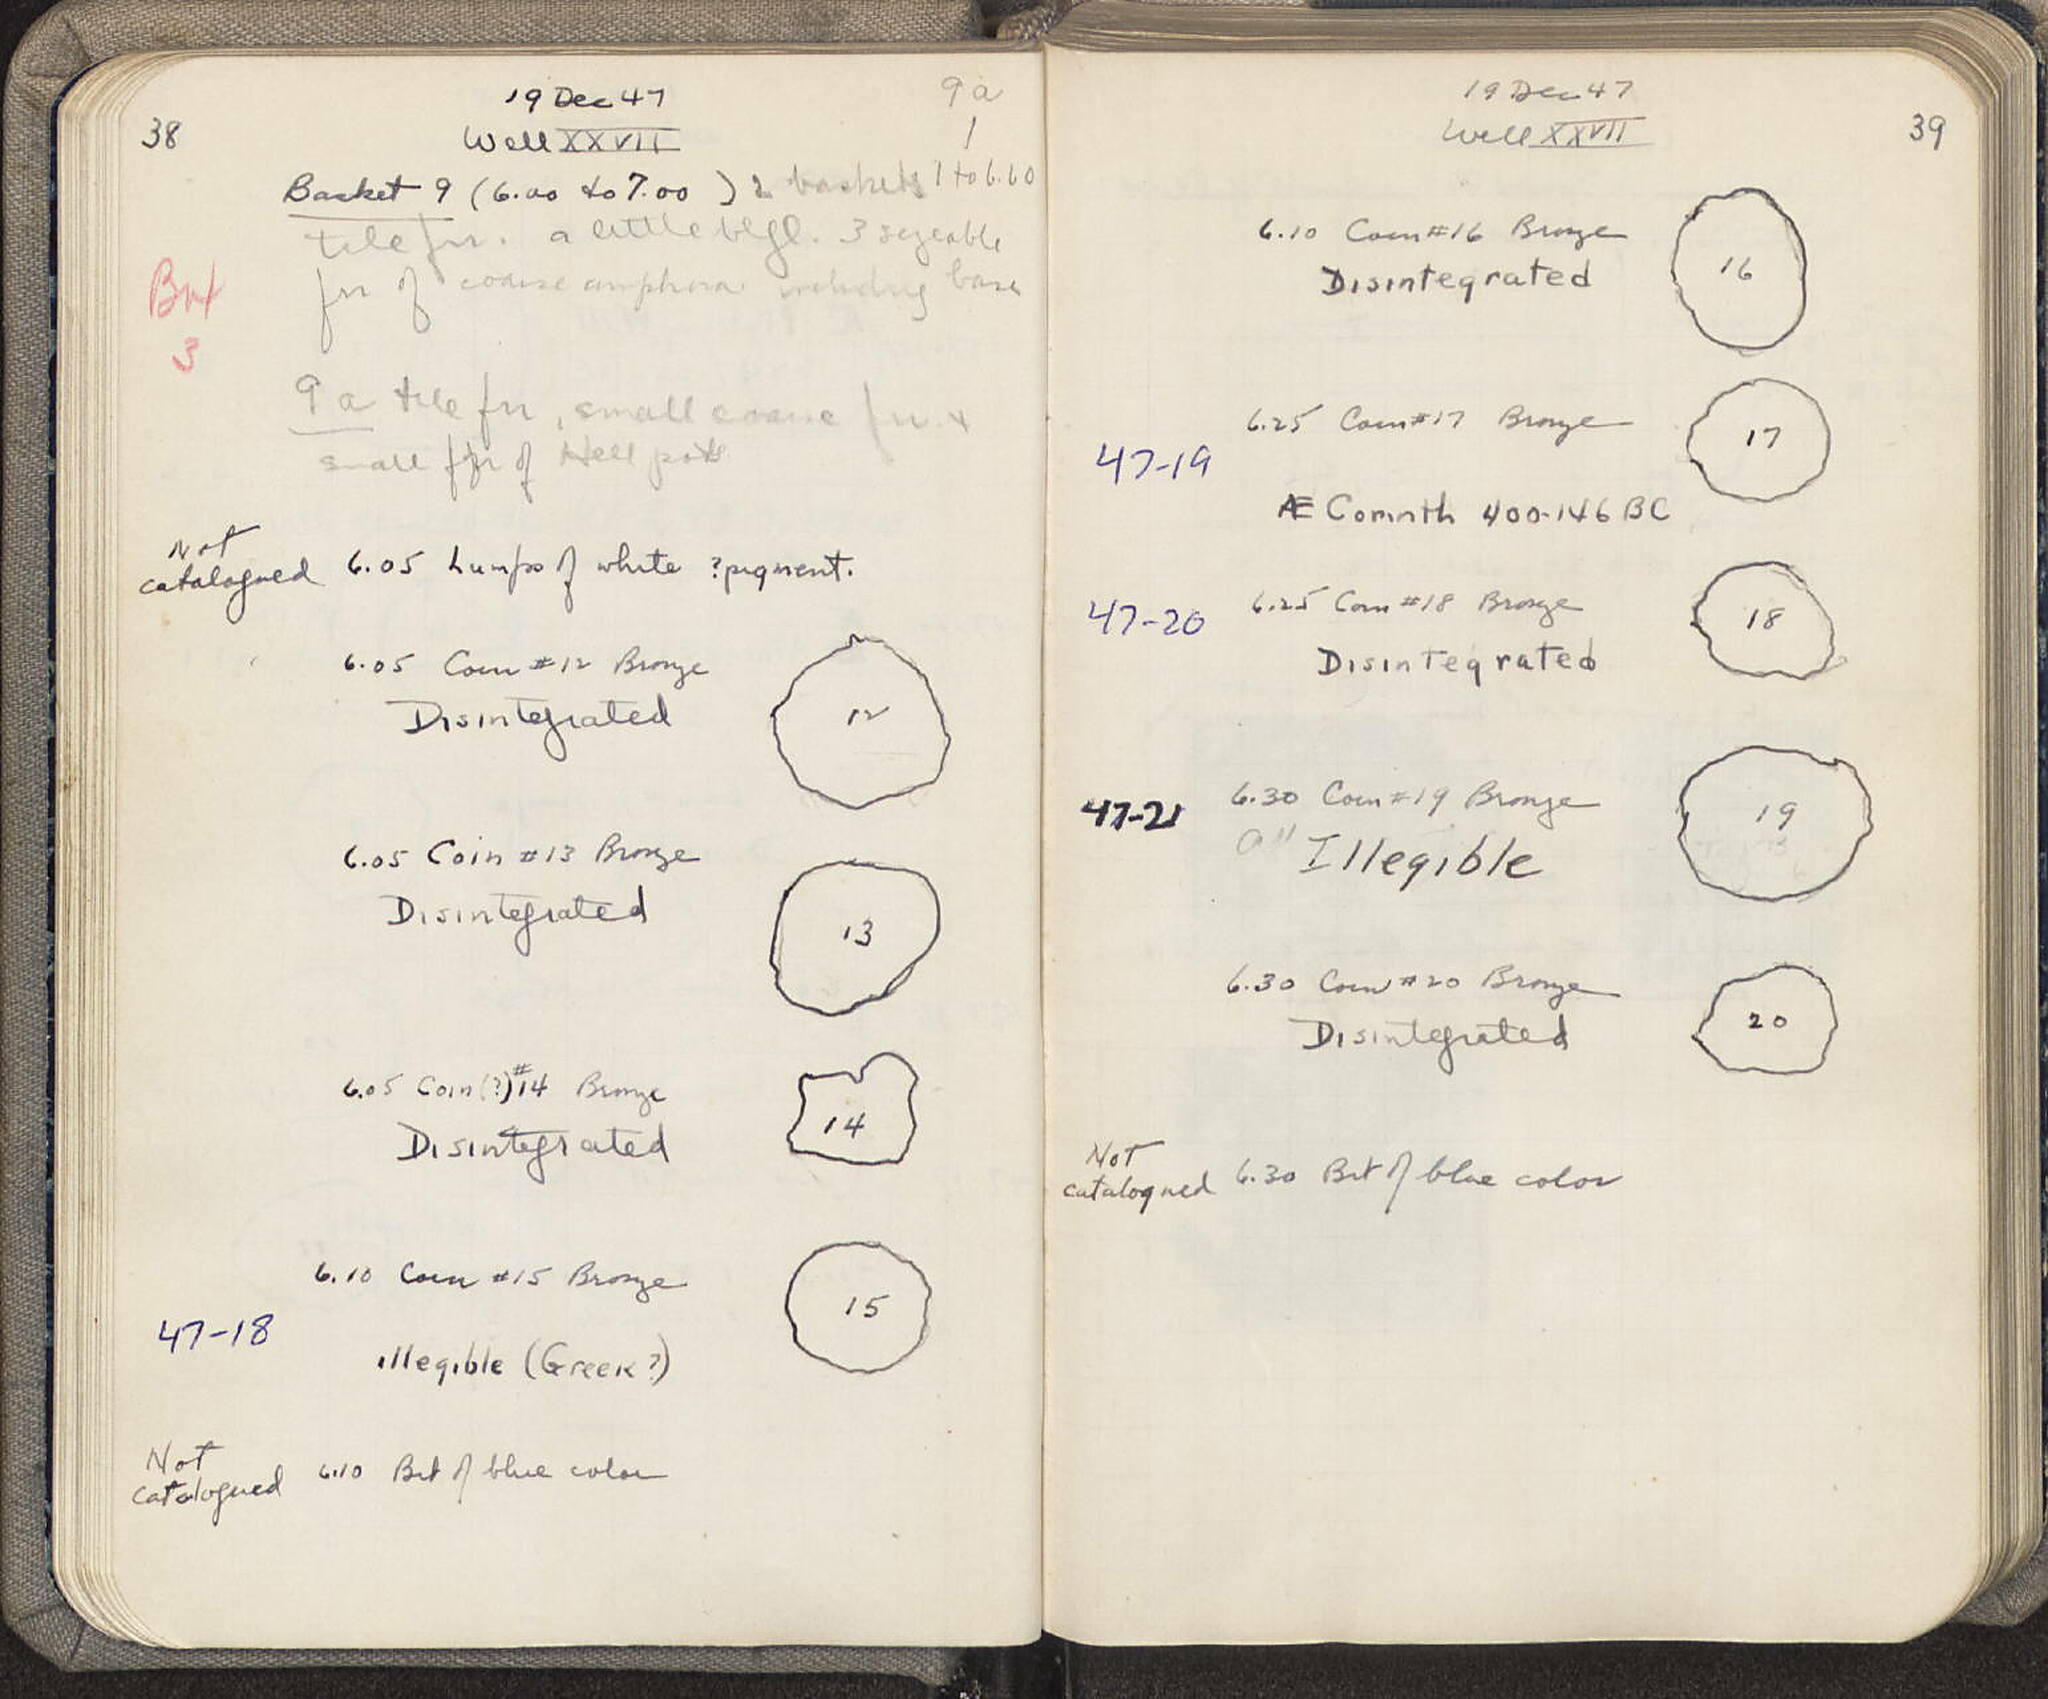 38
19 Dec 47
9a
Well XXVII
Basket 9 (6.00 to 7.00) 2 baskets to 6.60
tile frr. a little blgl. 3 sizeable
frr of coarse amphora including base
Box
3
9a tile frr, small coarse frr. +
small frr of Hell pots
Not
catalogued 6.05 Lumps of white ?pigment.
6.05 Coin #12 Bronze
Disintegrated
12
6.05 Coin #13 Bronze
Disintegrated
13
6.05 Coin(?) #14 Bronze
Disintegrated
14
6.10 Coin #15 Bronze
15
47-18
illegible (Greek?)
Not
catalogued 6.10 Bit of blue color
19 Dec 47
Well XXVII
39
6.10 Coin #16 Bronze
Disintegrated
16
6.25 Coin #17 Bronze
17
47-19
Æ Corinth 400-146 BC
47-20 6.25 Coin #18 Bronze
Disintegrated
18
47-21 6.30 Coin #19 Bronze
Illegible
19
6.30 Coin #20 Bronze
Disintegrated
20
Not
catalogued 6.30 Bit of blue color